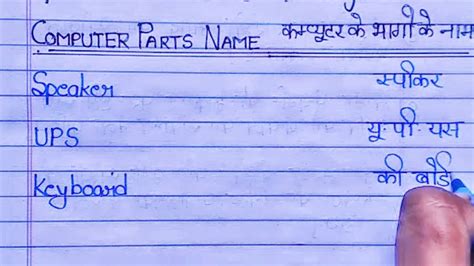 COMPUTER PARTS NAME कम्प्यूटर के भागो के नाम
Speaker स्पीकर
UPS यू. पी. यस
Keyboard की बोर्ड